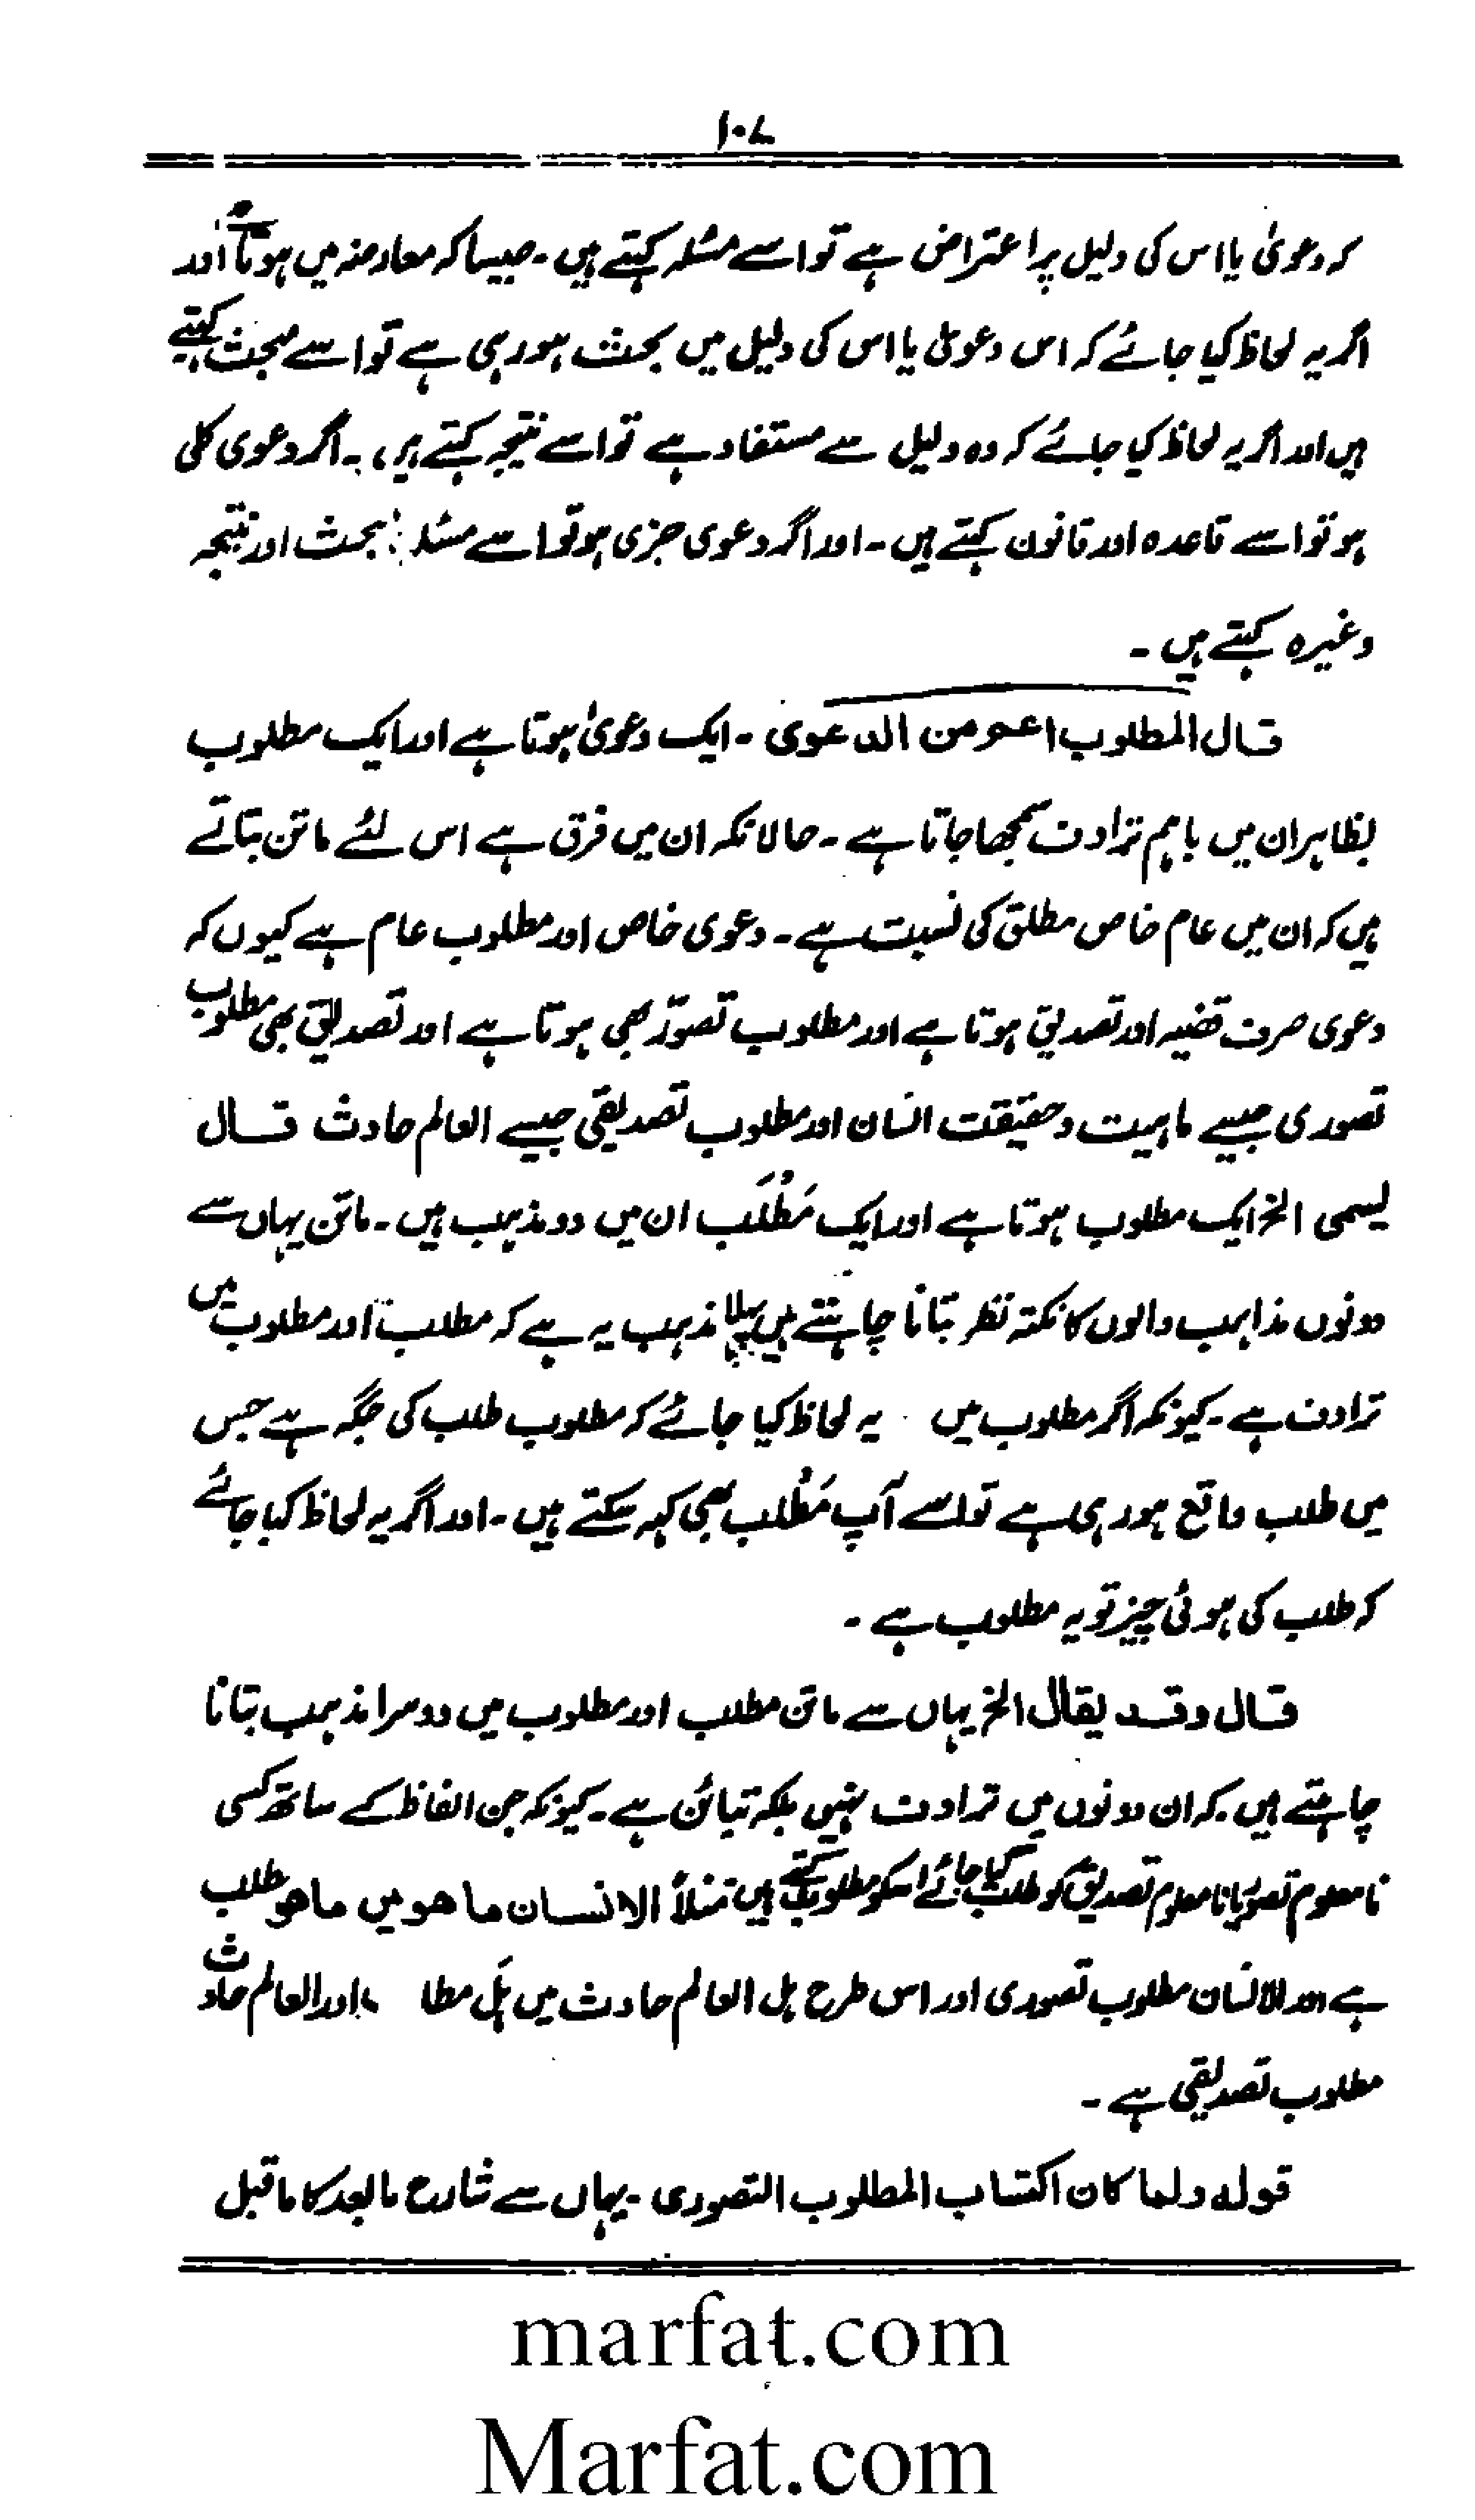 ۱۰۷
کہ دعویٰ یا اس کی دلیل پر اعتراض ہے تو اسے مسئلہ کہتے ہیں۔ جیسا کہ معارضہ میں ہوتا ہے اور
اگر یہ لحاظ کیا جائے کہ اس دعویٰ یا اس کی دلیل میں بحث ہو رہی ہے تو اسے مبحث کہتے
ہیں اور اگر یہ لحاظ کیا جائے کہ وہ دلیل سے مستفاد ہے تو اسے نتیجہ کہتے ہیں۔ اگر دعوی کلی
ہو تو اسے قاعدہ اور قانون کہتے ہیں۔ اور اگر دعوی جزی ہو تو اسے مسئلہ بحث اور نتیجہ
وغیرہ کہتے ہیں۔
قال المطلوب اعم من الدعوی۔ ایک دعویٰ ہوتا ہے اور ایک مطلوب
بظاہر ان میں باہم ترادف سمجھا جاتا ہے۔ حالانکہ ان میں فرق ہے اس لئے ماتن بتاتے
ہیں کہ ان میں عام خاص مطلق کی نسبت ہے۔ دعوی خاص اور مطلوب عام ہے کیوں کہ
دعوی صرف قضیہ اور تصدیق ہوتا ہے اور مطلوب تصوّر بھی ہوتا ہے اور تصدیق بھی مطلوب
تصوری جیسے ماہیت و حقیقت انسان اور مطلوب تصدیقی جیسے العالم حادث قال
یسمی الخ ایک مطلوب ہوتا ہے اور ایک مَطْلَب ان میں دو مذہب ہیں۔ ماتن یہاں سے
دونوں مذاہب والوں کا نکتہ نظر بتانا چاہتے ہیں پہلا مذہب یہ ہے کہ مطلب اور مطلوب میں
ترادف ہے۔ کیونکہ اگر مطلوب میں یہ لحاظ کیا جائے کہ مطلوب طلب کی جگہ ہے جس
میں طلب واقع ہو رہی ہے تو اسے آپ مَطْلب بھی کہہ سکتے ہیں۔ اور اگر یہ لحاظ کیا جائے
کہ طلب کی ہوئی چیز تو یہ مطلوب ہے۔
قال وقد یقال الخ یہاں سے ماتن مطلب اور مطلوب میں دوسرا مذہب بتانا
چاہتے ہیں۔ کہ ان دونوں میں ترادف نہیں بلکہ تبائن ہے۔ کیونکہ جن الفاظ کے ساتھ کسی
نامعلوم تصوّر یا نامعلوم تصدیق کو طلب کیا جائے اسکو مطلوب کہتے ہیں مثلاً الانسان ما هو میں ما هو مطلب
ہے اور الانسان مطلوب تصوری اور اس طرح ہل العالم حادث میں ہَل مطا اور العالم حادث
مطلوب تصدیقی ہے۔
قوله ولما کان اکتساب المطلوب التصوری۔ یہاں سے شارح مابعد کا ماقبل
marfat.com
Marfat.com